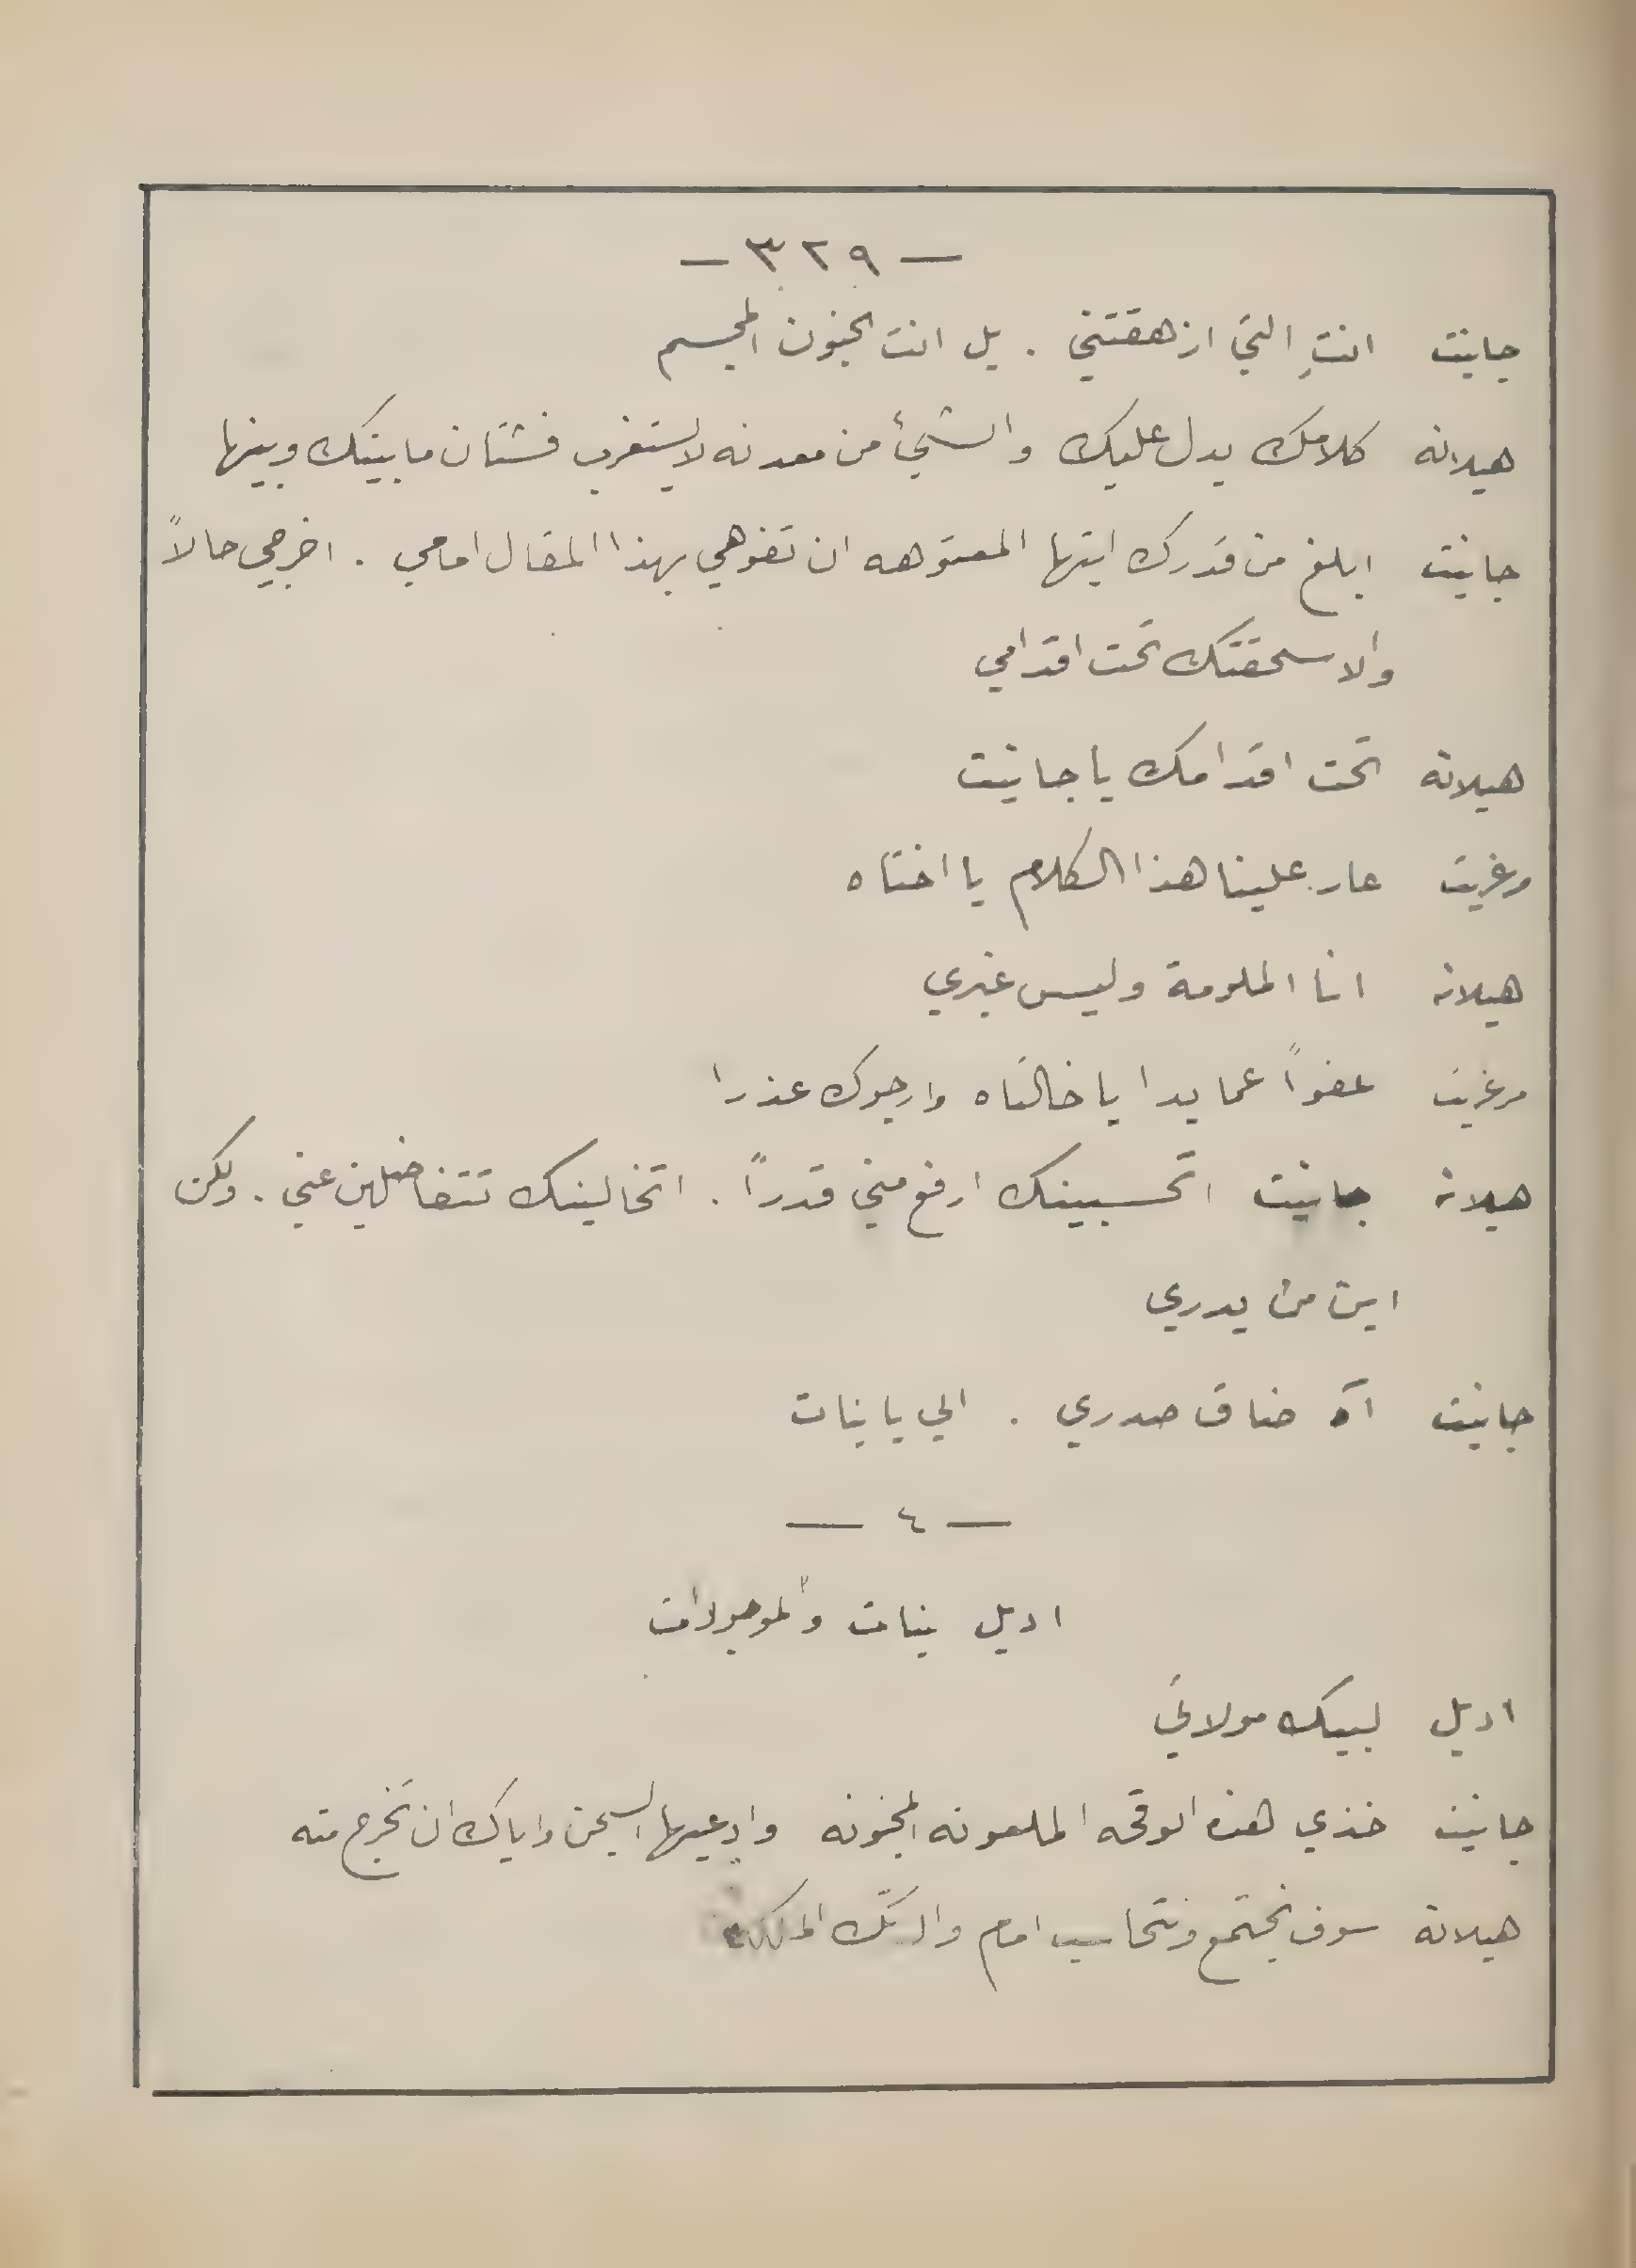 — ٣٢٩ —
جانيت انتِ التي ازهقتني . بل انت الجنون المجسم
هيلانه كلامك يدل عليك والشيُّ من معدنه لا يستغرب فشتان ما بينك وبينها
جانيت ابلغ من قدرك ايتها المعتوهه ان تفوهي بهذا المقال امامي . اخرجي حالاً
والا سحقتك تحت اقدامي
هيلانة تحت اقدامك يا جانيت
مرغريت عار علينا هذا الكلام يا اختاه
هيلانة انا الملومة وليس غيري
مرغريت عفواً عما بدا يا خالتاه وارجوك عذرا
هيلانة جانيت اتحسبينك ارفع مني قدراً . اتخالينك تتفاضلين عني . ولكن
اين من يدري
جانيت آه ضاق صدري . الي يا بنات
— ٤ —
اديل بنات والموجودات
اديل لبيك مولاتي
جانيت خذي هذه الوقحه الملعونه المجنونه وادعيها السجن واياك ان تخرج منه
هيلانة سوف نجتمع ونتحاسب امام والدتك